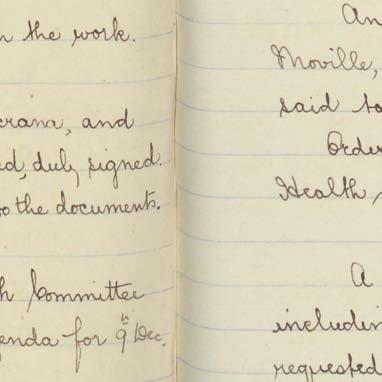 the work.
and
duly signed.
to the documents.
Committee
for 9th Dec.
An
Moville,
said to
Order
Health,
A
includin
requested